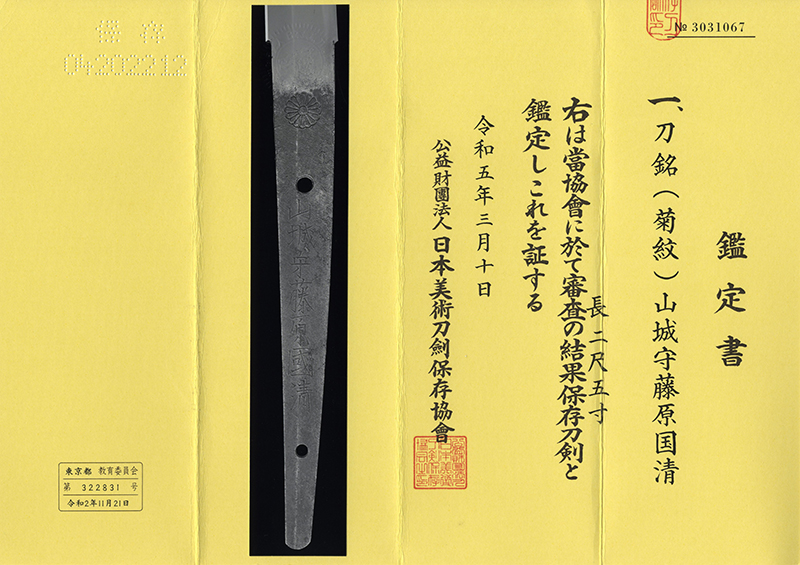 № 3031067
鑑定書
一、刀銘(菊紋)山城守藤原国清
長二尺五寸
右は當協會に於て審査の結果保存刀剣と
鑑定しこれを証する
令和五年三月十日
公益財團法人日本美術刀劍保存協會
山城守藤原國清
保存
04202212
東京都 教育委員会
第 322831 号
令和2年11月21日